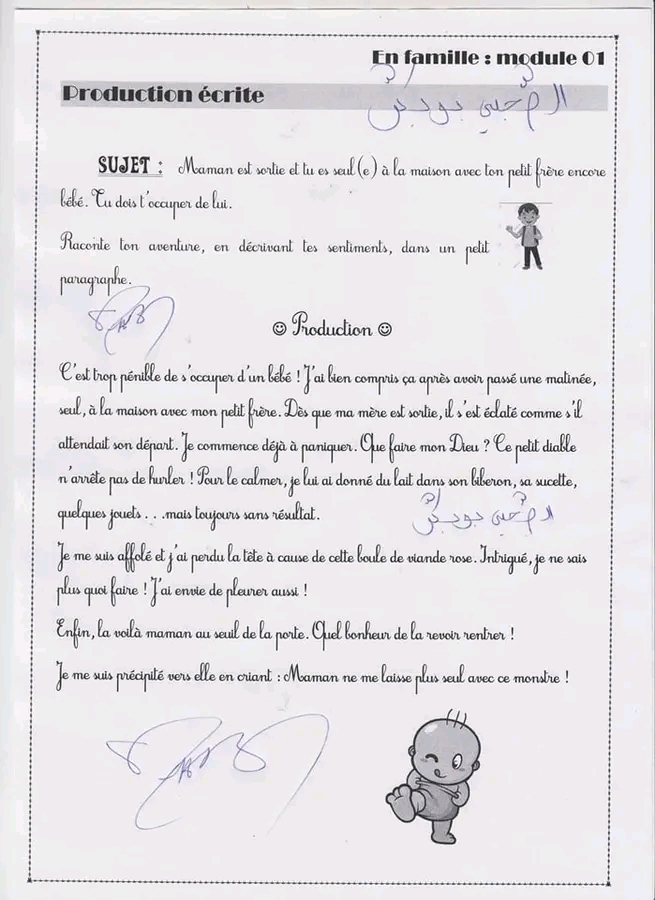 En famille : module 01
Production écrite
SUJET : Maman est sortie et tu es seul(e) à la maison avec ton petit frère encore
bébé. Tu dois t'occuper de lui.
Raconte ton aventure, en décrivant tes sentiments, dans un petit
paragraphe.
☺ Production ☺
C'est trop pénible de s'occuper d'un bébé ! J'ai bien compris ça après avoir passé une matinée,
seul, à la maison avec mon petit frère. Dès que ma mère est sortie, il s'est éclaté comme s'il
attendait son départ. Je commence déjà à paniquer. Que faire mon Dieu ? Ce petit diable
n'arrête pas de hurler ! Pour le calmer, je lui ai donné du lait dans son biberon, sa sucette,
quelques jouets . . .mais toujours sans résultat.
Je me suis affolé et j'ai perdu la tête à cause de cette boule de viande rose. Intrigué, je ne sais
plus quoi faire ! J'ai envie de pleurer aussi !
Enfin, la voilà maman au seuil de la porte. Quel bonheur de la revoir rentrer !
Je me suis précipité vers elle en criant : Maman ne me laisse plus seul avec ce monstre !